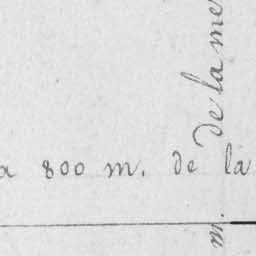 a 800 m. de la
de la me
m.